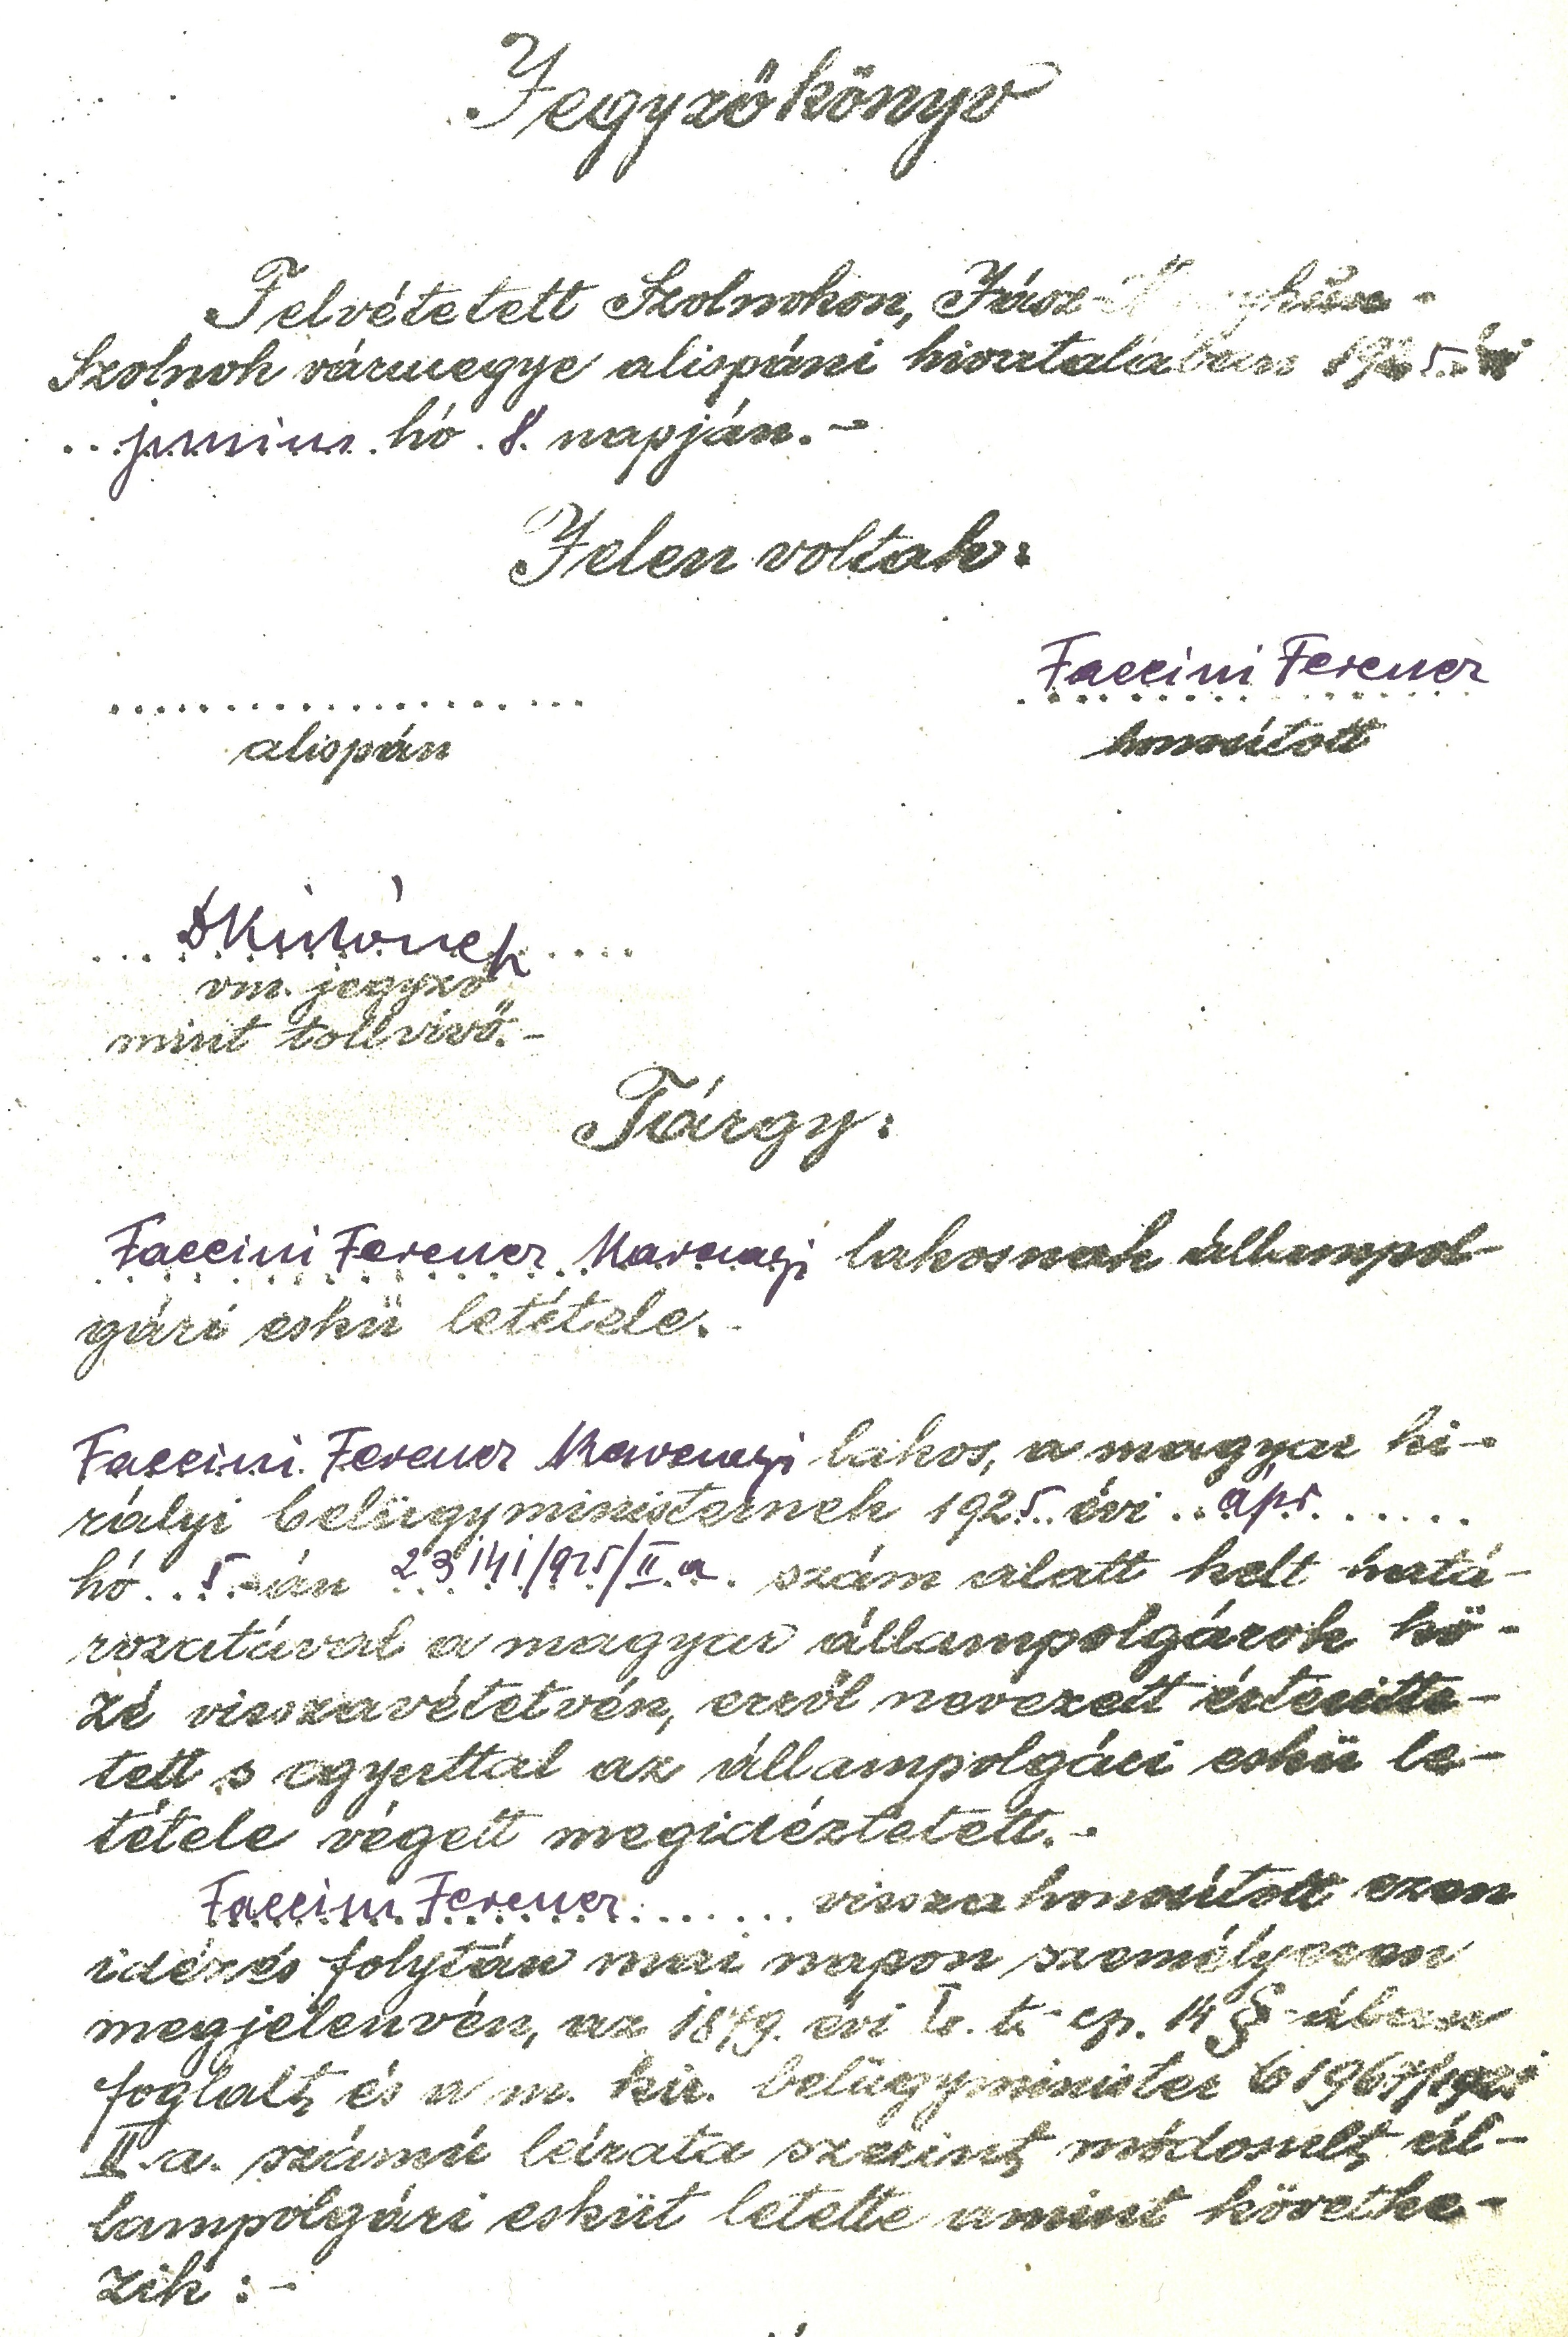 Jegyzőkönyv
Felvétetett Szolnokon, Jász-
Szolnok vármegye alispáni hivatalában 1925. évi
junius hó 8. napján.-
Jelen voltak:
Faccini Ferencz
alispán honosított
vm. jegyző
mint tollvivő.-
Tárgy:
Faccini Ferencz Karcagi lakosnak állampol-
gári eskü letétele.-
Faccini Ferencz Karcagi lakos, a magyar ki-
rályi belügyminiszternek 1925. évi ápr.
hó 5.-án /925/II a. szám alatt kelt hatá-
rozatával a magyar állampolgárok kö-
zé visszavétetvén, erről nevezett értesítte-
tett s egyuttal az állampolgári eskü le-
tétele végett megidéztetett.-
Faccini Ferencz visszahonosított ezen
idézés folytán mai napon személyesen
megjelenvén, az 1879. évi L. t. cz. 14 §-ában
foglalt, és a m. kir. belügyminister
II. a. számú leirata szerint, módosult, ál-
lampolgári esküt letette amint követke-
zik:-